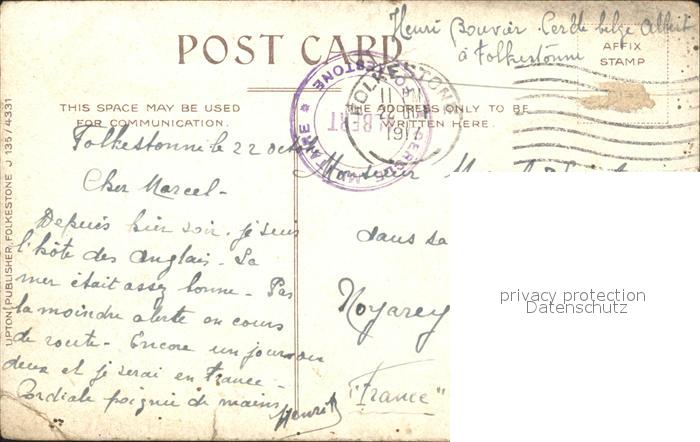 Henri Bouvier. Cercle belge Albert
à Folkestonne
POST CARD
AFFIX
STAMP
THIS SPACE MAY BE USED
FOR COMMUNICATION.
THE ADDRESS ONLY TO BE
WRITTEN HERE.
FOLKESTONE
11
22
1917
FOLKESTONE
Folkestonne le 22 octob
Cher Marcel -
Depuis hier soir. je suis
l'hôte des anglais. La
mer était assez bonne - Pas
la moindre alerte en cours
de route - Encore un jour ou
deux et je serai en France -
Cordiale poignée de mains
Henri
Monsieur
dans sa
Noyarey
"France"
UPTON, PUBLISHER, FOLKESTONE J 135/4331
privacy protection
Datenschutz